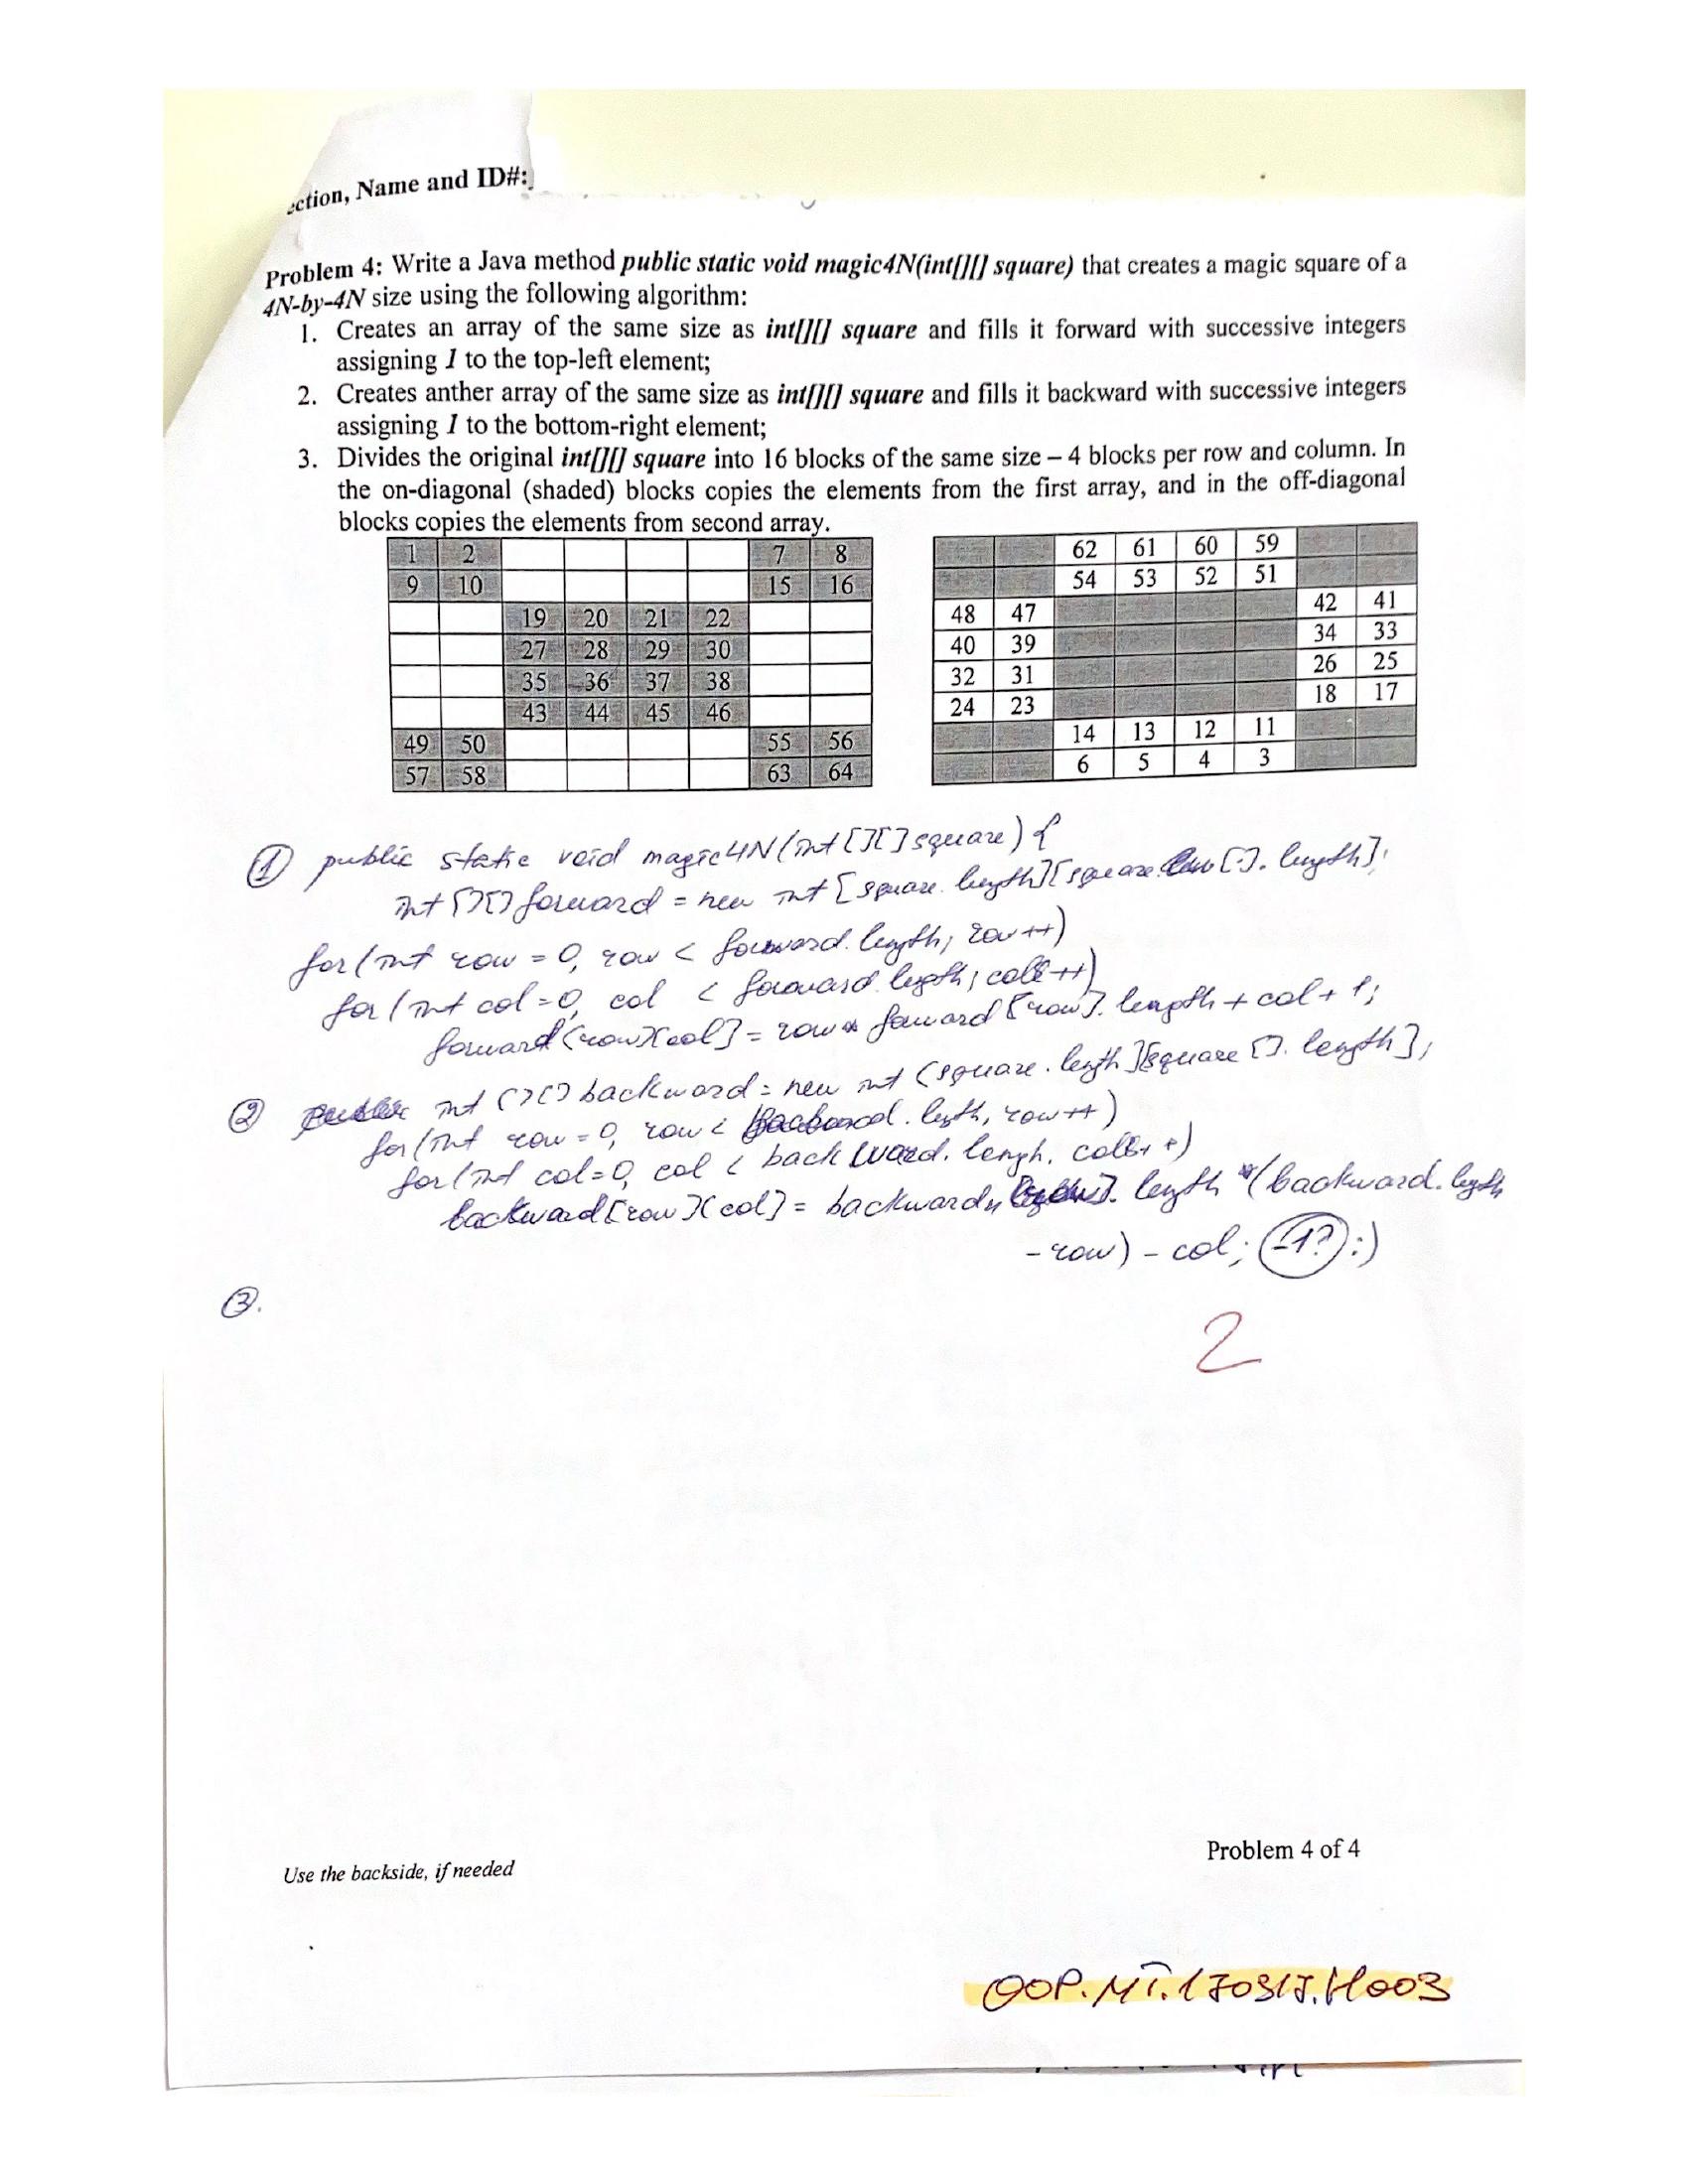 ction, Name and ID#:
Problem 4: Write a Java method public static void magic4N(int[][] square) that creates a magic square of a
4N-by-4N size using the following algorithm:
1. Creates an array of the same size as int[][] square and fills it forward with successive integers
assigning 1 to the top-left element;
2. Creates anther array of the same size as int[][] square and fills it backward with successive integers
assigning 1 to the bottom-right element;
3. Divides the original int[][] square into 16 blocks of the same size – 4 blocks per row and column. In
the on-diagonal (shaded) blocks copies the elements from the first array, and in the off-diagonal
blocks copies the elements from second array.
1 2 7 8
9 10 15 16
19 20 21 22
27 28 29 30
35 36 37 38
43 44 45 46
49 50 55 56
57 58 63 64
62 61 60 59
54 53 52 51
48 47 42 41
40 39 34 33
32 31 26 25
24 23 18 17
14 13 12 11
6 5 4 3
① public static void magic4N(int[][]square){
int[][] forward = new int[square.length][square[].length];
for(int row = 0, row < forward.length; row++)
for(int col=0, col < forward.legth; coll++)
forward[row][col] = row * forward[row].length + col + 1;
② int [][] backward = new int [square.length][square[].length];
for(int row = 0, row < backward.legth, row++)
for(int col=0, col < backward.lengh. coll++)
backward[row][col] = backward[row].length *(backward.legth
- row) - col; (-1?) :)
③.
2
Use the backside, if needed
Problem 4 of 4
OOP.MT.170317.H003